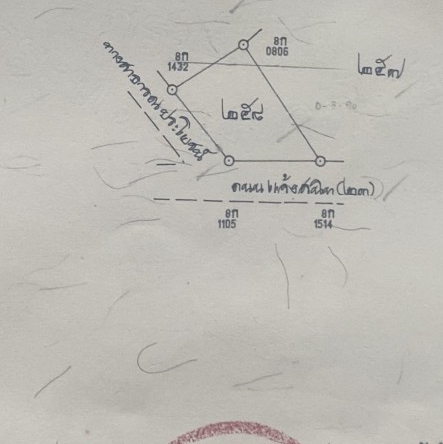 8ก
0806
8ก
1432
๒๕๗
ทางสาธารณประโยชน์
๒๕๘
ถนนแจ้งสนิท (๒๓)
8ก
1105
8ก
1514